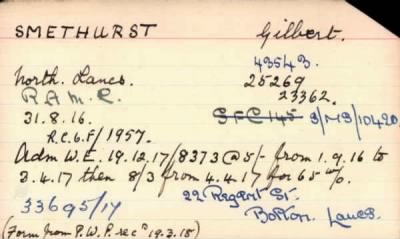 SMETHURST Gilbert.
43543.
North. Lancs. 25269
R A M C. 23362.
31.8.16. S F C 145 3/MS/10420
R.C.6.F/1957.
Adm W.E. 19.12.17/8373 @ 5/- from 1.9.16 to
3.4.17 then 8/3 from 4.4.17 for 65 w/o.
33695/17 22 Regent St.
Bolton Lancs.
(Form from P.W.P. recd 19.3.18)